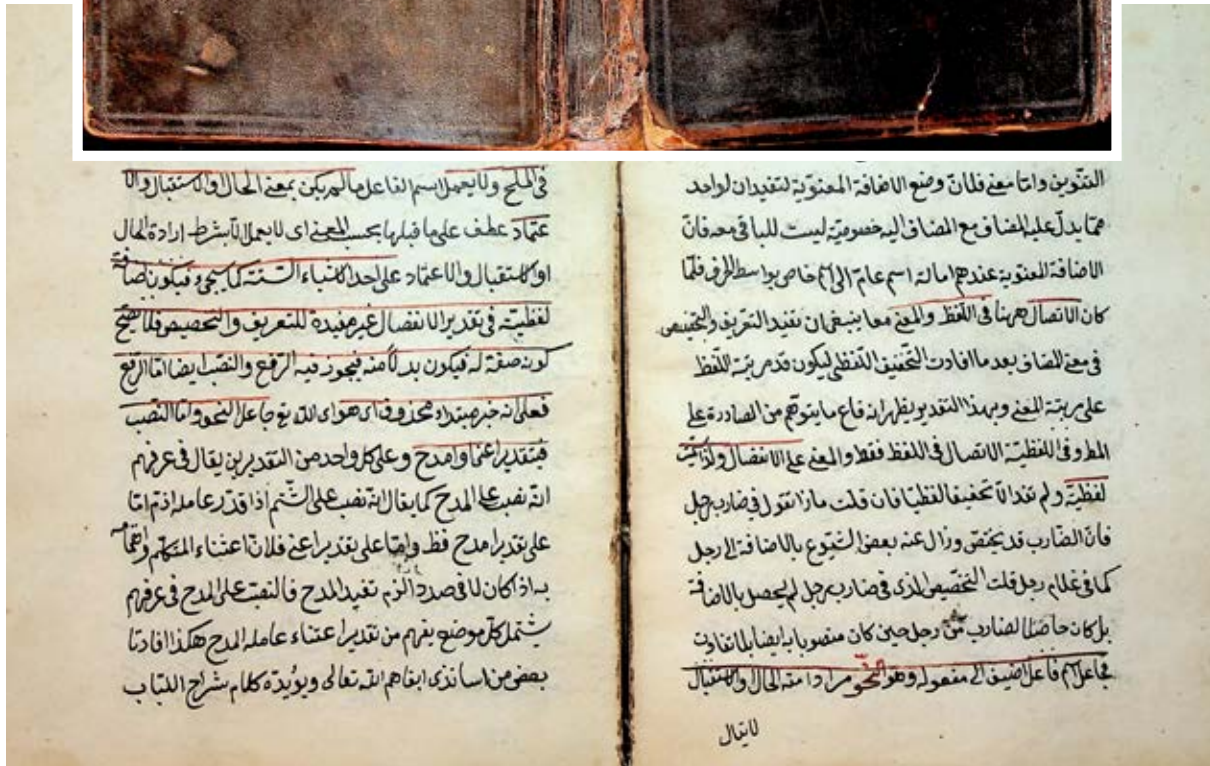 التنوين واما معنى فلان وضع الاضافة المعنوية لتفيد ان لواحد
مما يدل عليه المضاف مع المضاف اليه خصوصية ليست للباقى معه فان
الاضافة المعنوية عندهم امالة اسم عام الى اسم خاص بواسطة الحرف فلما
كان الاتصال ههنا فى اللفظ والمعنى معا ينبغى ان تفيد التعريف والتخصيص
فى معنى المضاف بعد ما افادت التخفيف اللفظى ليكون قدم ربتة اللفظ
على ربتة المعنى وبهذا التقدير يظهر اندفاع ما يتوهم من الصادرة على
المط وفى اللفظية الاتصال فى اللفظ فقط والمعنى على الانفصال ولذا سميت
لفظية ولم تفد الا تخفيفا لفظيا فان قلت ماذا تقول فى ضارب رجل
فان الضارب قد يختص وزال عنه بعض الشيوع بالاضافة الى رجل
كما فى غلام رجل قلت التخصيص الذى فى ضارب رجل لم يحصل بالاضافة
بل كان حاصلا لضارب من رجل حين كان منصوبا به ايضا بلا تفاوت
فجاعل اسم فاعل اضيف الى مفعوله وهو النحو مرادا منه الحال والاستقبال
لا يقال
فى الملح ولا يعمل اسم الفاعل ما لم يكن بمعنى الحال والاستقبال والا
عتماد عطف على ما قبلها بحسب المعنى اى لا يعمل الا بشرط ارادة الحال
او الاستقبال والاعتماد على احد الاشياء الستة كما سيجىء فيكون اضافة
لفظية فى تقدير الانفصال غير مفيدة للتعريف والتخصيص فلا يصح
كونه صفة له فيكون بدلا منه فيجوز فيه الرفع والنصب ايضا اما الرفع
فعلى انه خبر مبتداء محذوف اى هو اى الله تع جاعل النحو واما النصب
فبتقدير اعنى او امدح وعلى كل واحد من التقديرين يقال فى عرفهم
انه نصب على المدح كما يقال انه نصب على الشتم اذا قدر عامله اذم اما
على تقدير امدح فظ واما على تقدير اعنى فلان اعتناء المتكلم واهتمامه
به اذا كان لا فى صدد الذم تفيد المدح فالنصب على المدح فى عرفهم
يشتمل كل موضع يفهم من تقدير اعتناء عامله المدح هكذا افادنا
بعض من اساتذى ابقاهم الله تعالى ويؤيده كلام شراح اللباب